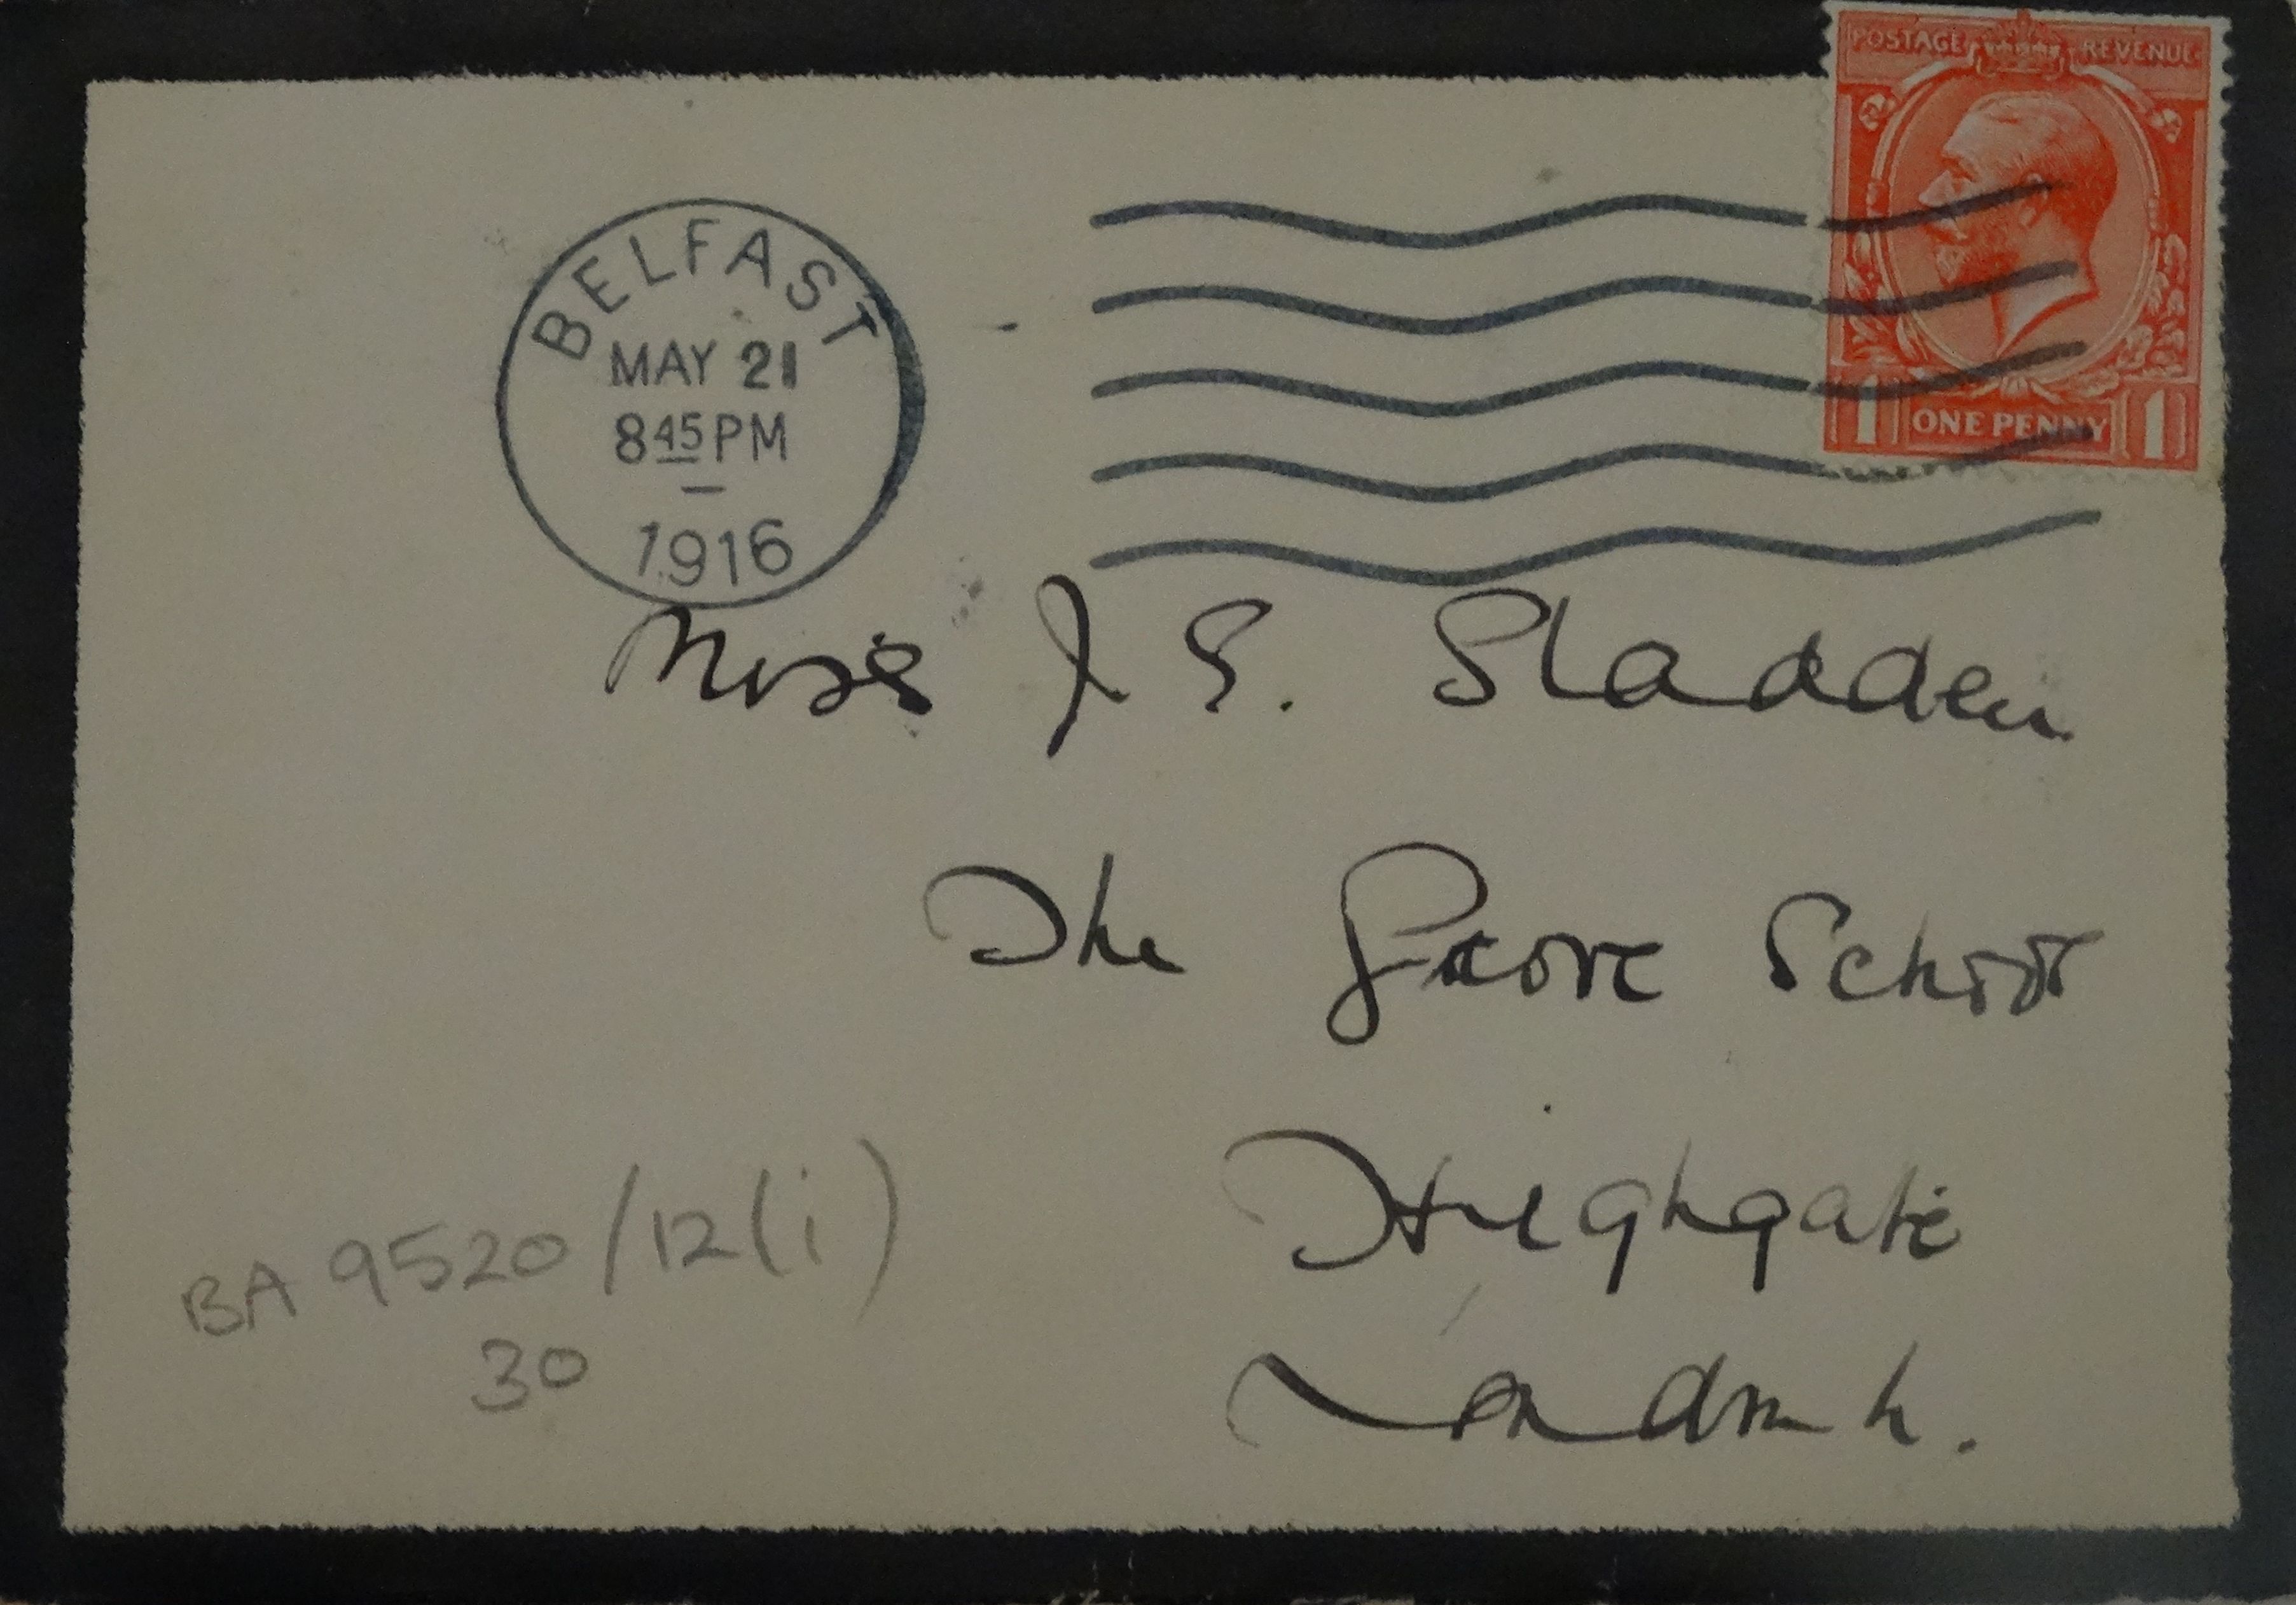 POSTAGE REVENUE
1 ONE PENNY 1
BELFAST
MAY 21
8 45 PM
1916
Miss J E. Sladden
The Grove School
Highgate
London N.
BA 9520/12(i)
30